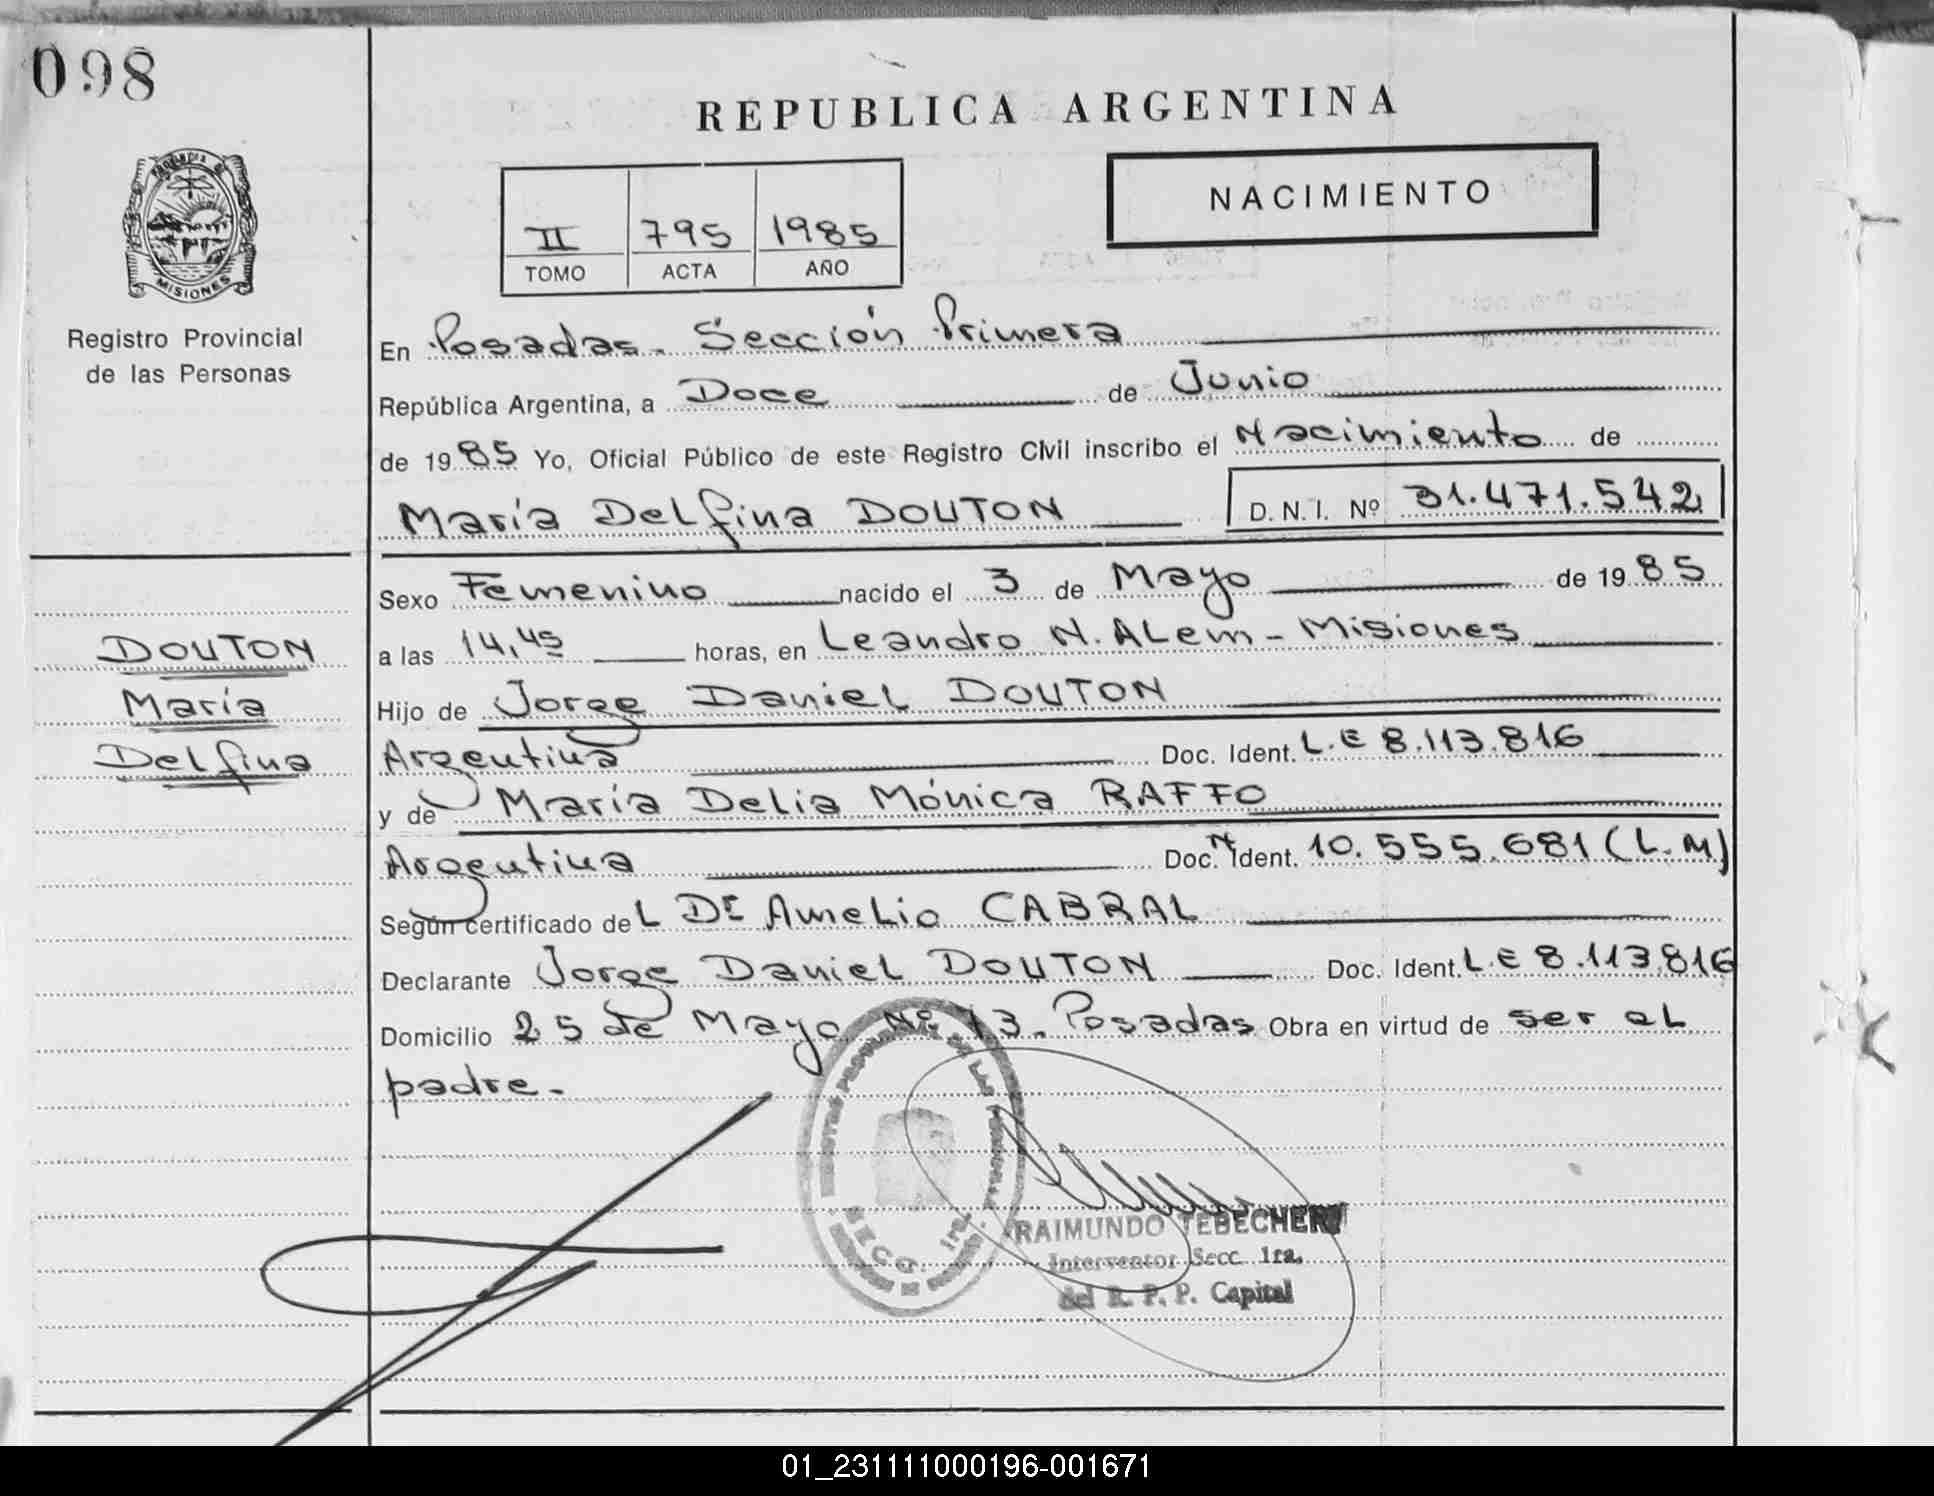 098
REPUBLICA ARGENTINA
PROVINCIA DE
MISIONES
Registro Provincial
de las Personas
II 795 1985
TOMO ACTA AÑO
NACIMIENTO
En Posadas. Sección Primera
República Argentina, a Doce de Junio
de 1985 Yo, Oficial Público de este Registro Civil inscribo el Nacimiento de
María Delfina DOUTON D. N. I. Nº 31.471.542
Sexo Femenino nacido el 3 de Mayo de 1985
DOUTON
María
Delfina
a las 14,45 horas, en Leandro N. ALem - Misiones
Hijo de Jorge Daniel DOUTON
Argentina Doc. Ident. L.E 8.113.816
y de María Delia Mónica RAFFO
Argentina Doc. Nº Ident. 10.555.681 (L.M)
Según certificado del Dr Aurelio CABRAL
Declarante Jorge Daniel DOUTON Doc. Ident. L.E 8.113.816
Domicilio 25 de Mayo Nº 13. Posadas Obra en virtud de ser al
padre.
SECC. 1ra.
RAIMUNDO TEBECHERI
Interventor Secc. 1ra.
del R. P. P. Capital
01_231111000196-001671